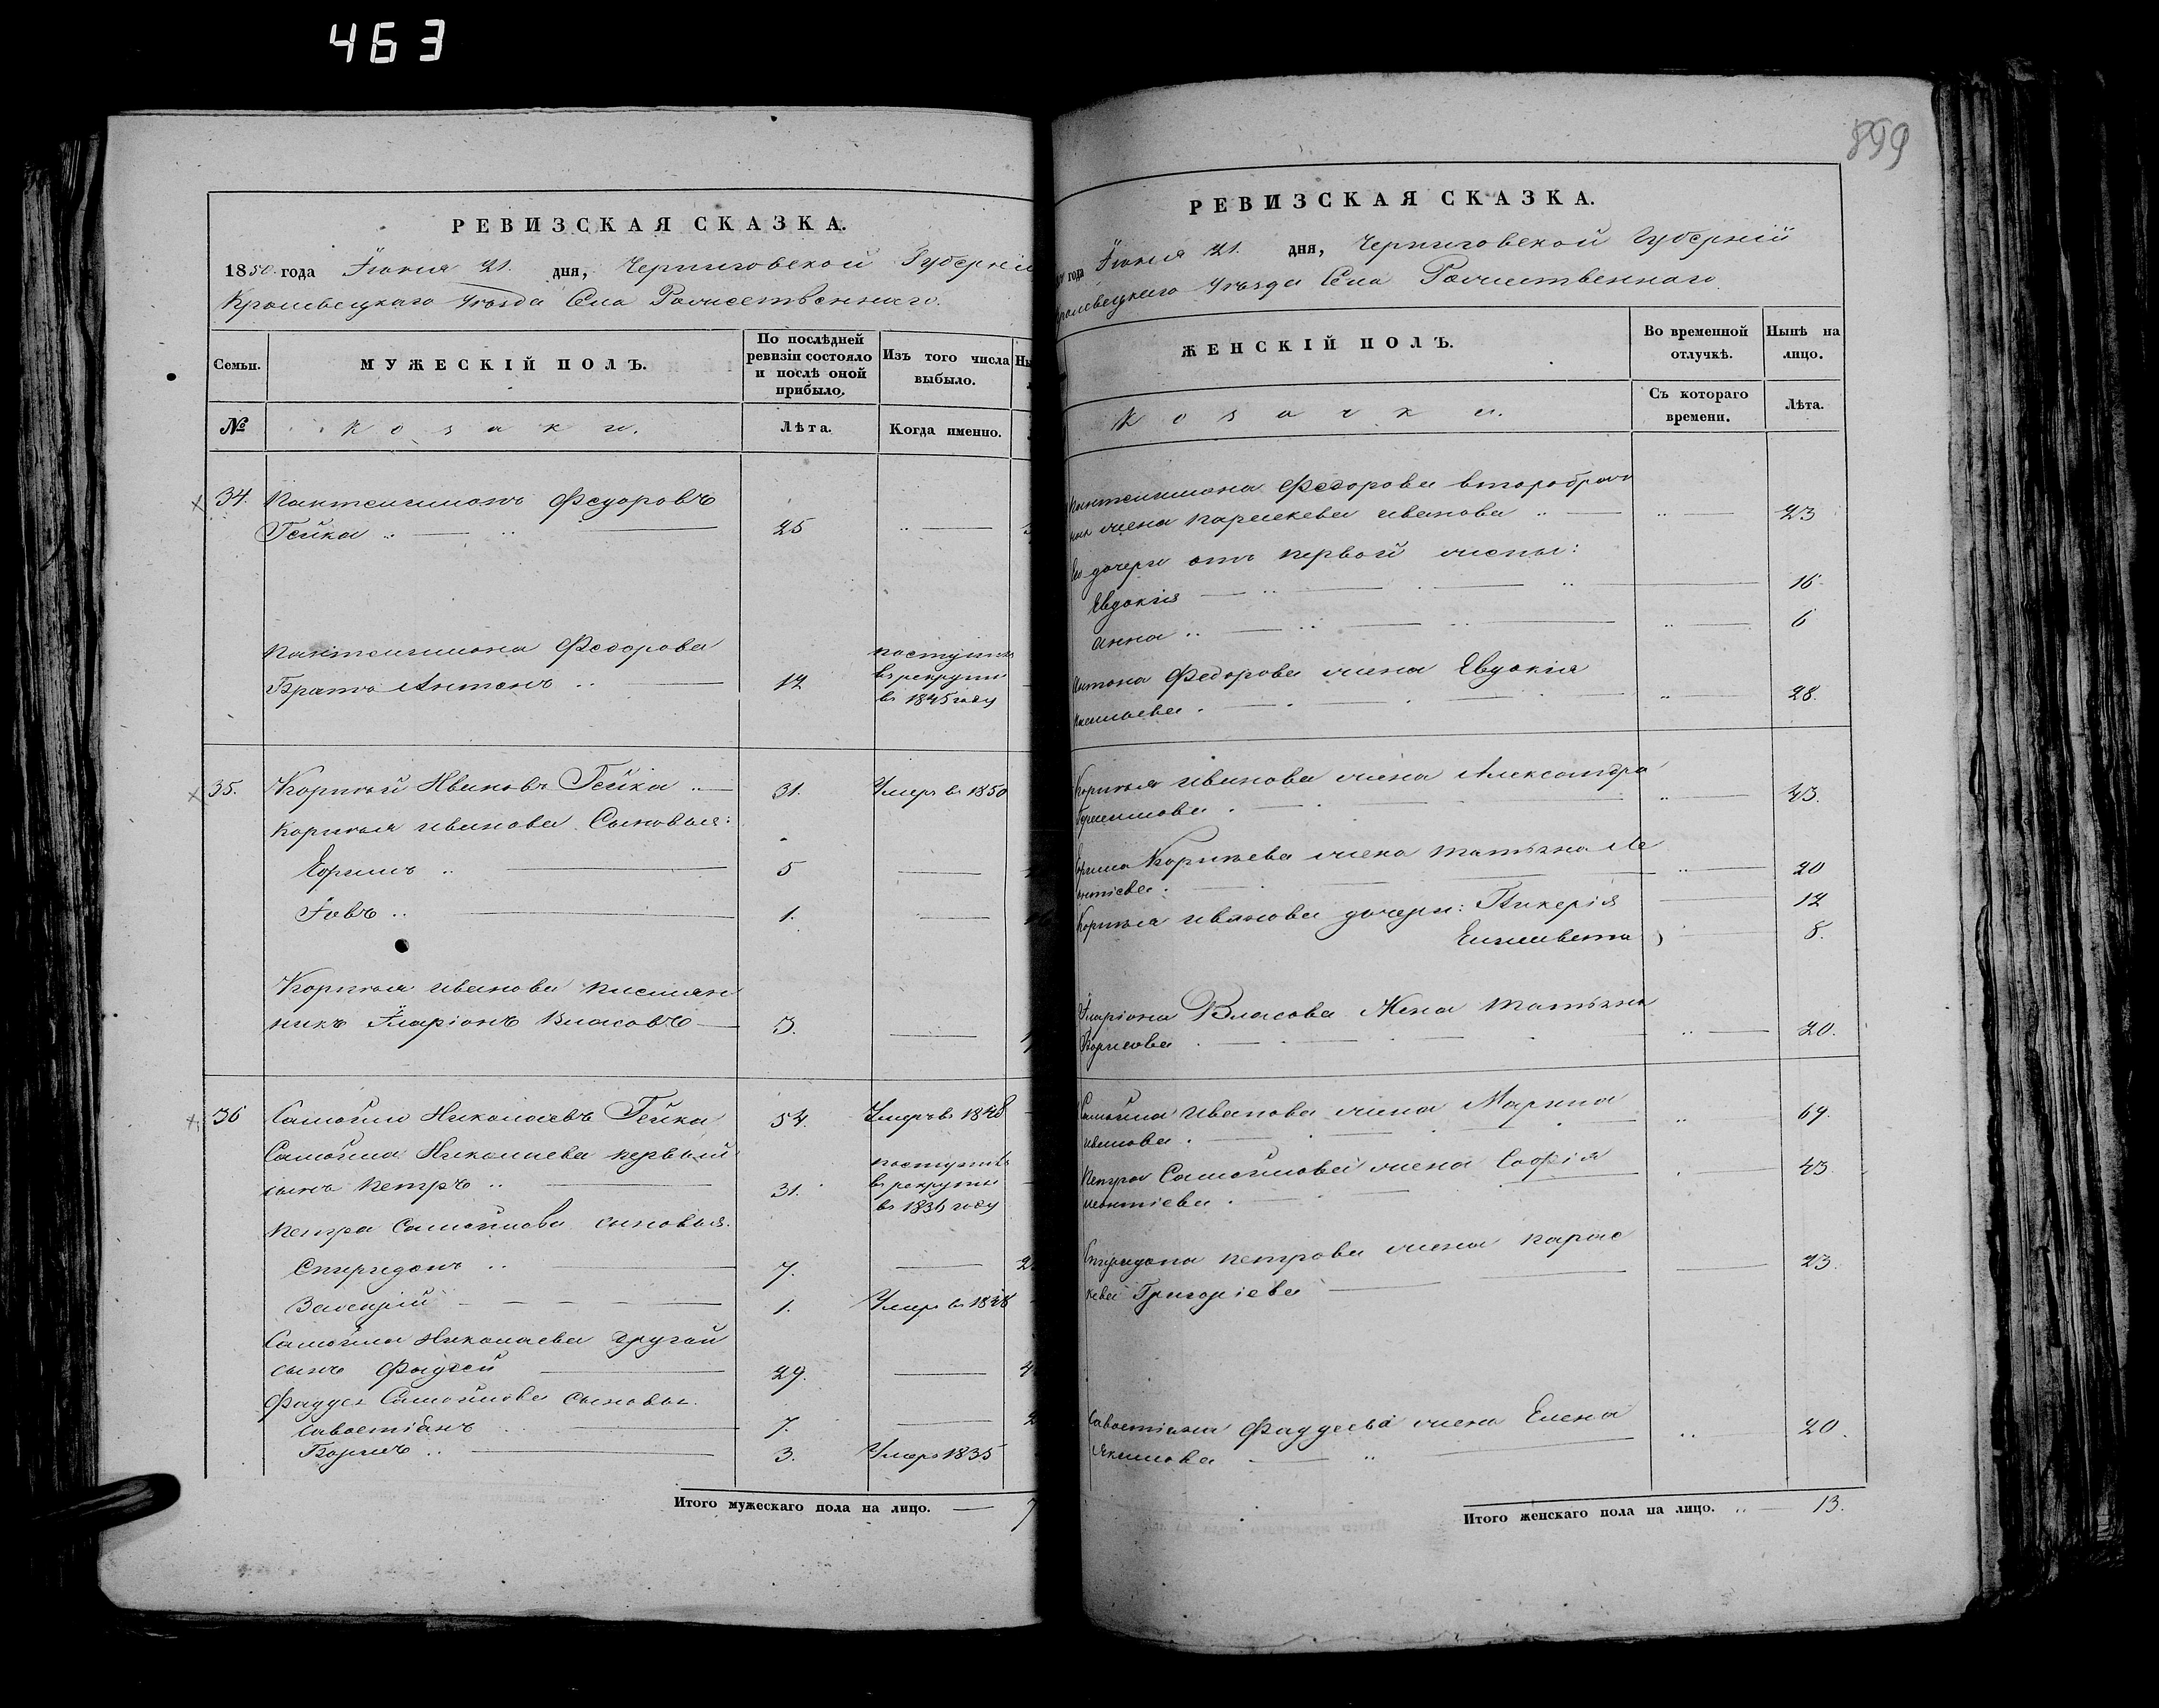 463
899
РЕВИЗСКАЯ СКАЗКА.
1850 года Іюня 21. дня, Черниговской Губерніи
Кролевецкаго Уѣзда Села Рожественнаго.
Семьи.
МУЖЕСКІЙ ПОЛЪ.
По послѣдней ревизіи состояло и послѣ оной прибыло.
Изъ того числа выбыло.
№
Козаки.
Лѣта.
Когда именно.
34. Пантелимонъ Федоровъ
Гейка 25
Пантелимона Федорова
Братъ Антонъ 12 поступил в рекруты в 1845 году
35. Корнѣй Ивановъ Гейка 31. Умеръ в 1850
Корнѣя Иванова Сыновья:
Ефимъ 5
Іовъ 1.
Корнѣя Иванова
Іларіонъ Власовъ 3.
36 Самойло Николаевъ Гейка 54. Умеръ в 1848
Самойла Николаева первый
сынъ Петръ 31. поступилъ в рекруты в 1836 году
Петра Самойлова сыновья.
Спиридонъ 7.
1. Умеръ в 1838
Самойла Николаева другой
сынъ Фадей 29.
Фаддея Самойлова сыновья.
Савостіанъ 7.
Борисъ 3. Умеръ 1835
Итого мужескаго пола на лицо. 7
РЕВИЗСКАЯ СКАЗКА.
года Іюня 21. дня, Черниговской Губерніи
Кролевецкаго Уѣзда Села Рожественнаго
ЖЕНСКІЙ ПОЛЪ.
Во временной отлучкѣ.
Нынѣ на лицо.
Козачки.
Съ котораго времени.
Лѣта.
Пантелимона Федорова второбрач
ная жена Параскева Иванова 23
Его дочери отъ первой жены:
Евдокія 16
Анна 6
Антона Федорова жена Евдокія
28.
Корнѣя Иванова жена Александра
43.
Корнѣева жена Татьяна Ле
онтіева 20
Корнѣя Иванова дочери: Гликерія 12
Елисавета 8.
Іларіона Власова Жена Татьяна
20.
Самойла Иванова жена Марина
Иванова 69.
Петра Самойлова жена Софія
Леонтіева 43
Спиридона Петрова жена Парас
кева Григоріева 23.
Савостіана Фаддеева жена Елена
Якимова 20.
Итого женскаго пола на лицо. 13.